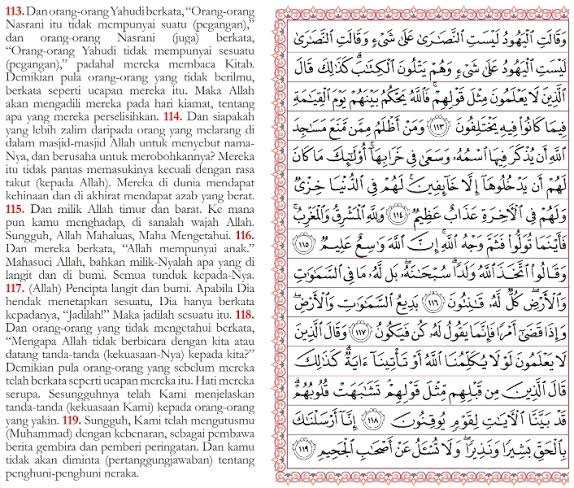 113. Dan orang-orang Yahudi berkata, “Orang-orang
Nasrani itu tidak mempunyai suatu (pegangan),”
dan orang-orang Nasrani (juga) berkata,
“Orang-orang Yahudi tidak mempunyai sesuatu
(pegangan),” padahal mereka membaca Kitab.
Demikian pula orang-orang yang tidak berilmu,
berkata seperti ucapan mereka itu. Maka Allah
akan mengadili mereka pada hari kiamat, tentang
apa yang mereka perselisihkan. 114. Dan siapakah
yang lebih zalim daripada orang yang melarang di
dalam masjid-masjid Allah untuk menyebut nama-
Nya, dan berusaha untuk merobohkannya? Mereka
itu tidak pantas memasukinya kecuali dengan rasa
takut (kepada Allah). Mereka di dunia mendapat
kehinaan dan di akhirat mendapat azab yang berat.
115. Dan milik Allah timur dan barat. Ke mana
pun kamu menghadap, di sanalah wajah Allah.
Sungguh, Allah Mahaluas, Maha Mengetahui. 116.
Dan mereka berkata, “Allah mempunyai anak.”
Mahasuci Allah, bahkan milik-Nyalah apa yang di
langit dan di bumi. Semua tunduk kepada-Nya.
117. (Allah) Pencipta langit dan bumi. Apabila Dia
hendak menetapkan sesuatu, Dia hanya berkata
kepadanya, “Jadilah!” Maka jadilah sesuatu itu. 118.
Dan orang-orang yang tidak mengetahui berkata,
“Mengapa Allah tidak berbicara dengan kita atau
datang tanda-tanda (kekuasaan-Nya) kepada kita?”
Demikian pula orang-orang yang sebelum mereka
telah berkata seperti ucapan mereka itu. Hati mereka
serupa. Sesungguhnya telah Kami menjelaskan
tanda-tanda (kekuasaan Kami) kepada orang-orang
yang yakin. 119. Sungguh, Kami telah mengutusmu
(Muhammad) dengan kebenaran, sebagai pembawa
berita gembira dan pemberi peringatan. Dan kamu
tidak akan diminta (pertanggungjawaban) tentang
penghuni-penghuni neraka.
وَقَالَتِ ٱلْيَهُودُ لَيْسَتِ ٱلنَّصَٰرَىٰ عَلَىٰ شَىْءٍ وَقَالَتِ ٱلنَّصَٰرَىٰ
لَيْسَتِ ٱلْيَهُودُ عَلَىٰ شَىْءٍ وَهُمْ يَتْلُونَ ٱلْكِتَٰبَ ۗ كَذَٰلِكَ قَالَ
ٱلَّذِينَ لَا يَعْلَمُونَ مِثْلَ قَوْلِهِمْ ۚ فَٱللَّهُ يَحْكُمُ بَيْنَهُمْ يَوْمَ ٱلْقِيَٰمَةِ
فِيمَا كَانُوا۟ فِيهِ يَخْتَلِفُونَ ١١٣ وَمَنْ أَظْلَمُ مِمَّن مَّنَعَ مَسَٰجِدَ
ٱللَّهِ أَن يُذْكَرَ فِيهَا ٱسْمُهُۥ وَسَعَىٰ فِى خَرَابِهَآ ۚ أُو۟لَٰٓئِكَ مَا كَانَ
لَهُمْ أَن يَدْخُلُوهَآ إِلَّا خَآئِفِينَ ۚ لَهُمْ فِى ٱلدُّنْيَا خِزْىٌ
وَلَهُمْ فِى ٱلْءَاخِرَةِ عَذَابٌ عَظِيمٌ ١١٤ وَلِلَّهِ ٱلْمَشْرِقُ وَٱلْمَغْرِبُ ۚ
فَأَيْنَمَا تُوَلُّوا۟ فَثَمَّ وَجْهُ ٱللَّهِ ۚ إِنَّ ٱللَّهَ وَٰسِعٌ عَلِيمٌ ١١٥
وَقَالُوا۟ ٱتَّخَذَ ٱللَّهُ وَلَدًا ۗ سُبْحَٰنَهُۥ ۖ بَل لَّهُۥ مَا فِى ٱلسَّمَٰوَٰتِ
وَٱلْأَرْضِ ۖ كُلٌّ لَّهُۥ قَٰنِتُونَ ١١٦ بَدِيعُ ٱلسَّمَٰوَٰتِ وَٱلْأَرْضِ ۖ
وَإِذَا قَضَىٰٓ أَمْرًا فَإِنَّمَا يَقُولُ لَهُۥ كُن فَيَكُونُ ١١٧ وَقَالَ ٱلَّذِينَ
لَا يَعْلَمُونَ لَوْلَا يُكَلِّمُنَا ٱللَّهُ أَوْ تَأْتِينَآ ءَايَةٌ ۗ كَذَٰلِكَ
قَالَ ٱلَّذِينَ مِن قَبْلِهِم مِّثْلَ قَوْلِهِمْ ۘ تَشَٰبَهَتْ قُلُوبُهُمْ ۗ
قَدْ بَيَّنَّا ٱلْءَايَٰتِ لِقَوْمٍ يُوقِنُونَ ١١٨ إِنَّآ أَرْسَلْنَٰكَ
بِٱلْحَقِّ بَشِيرًا وَنَذِيرًا ۖ وَلَا تُسْـَٔلُ عَنْ أَصْحَٰبِ ٱلْجَحِيمِ ١١٩